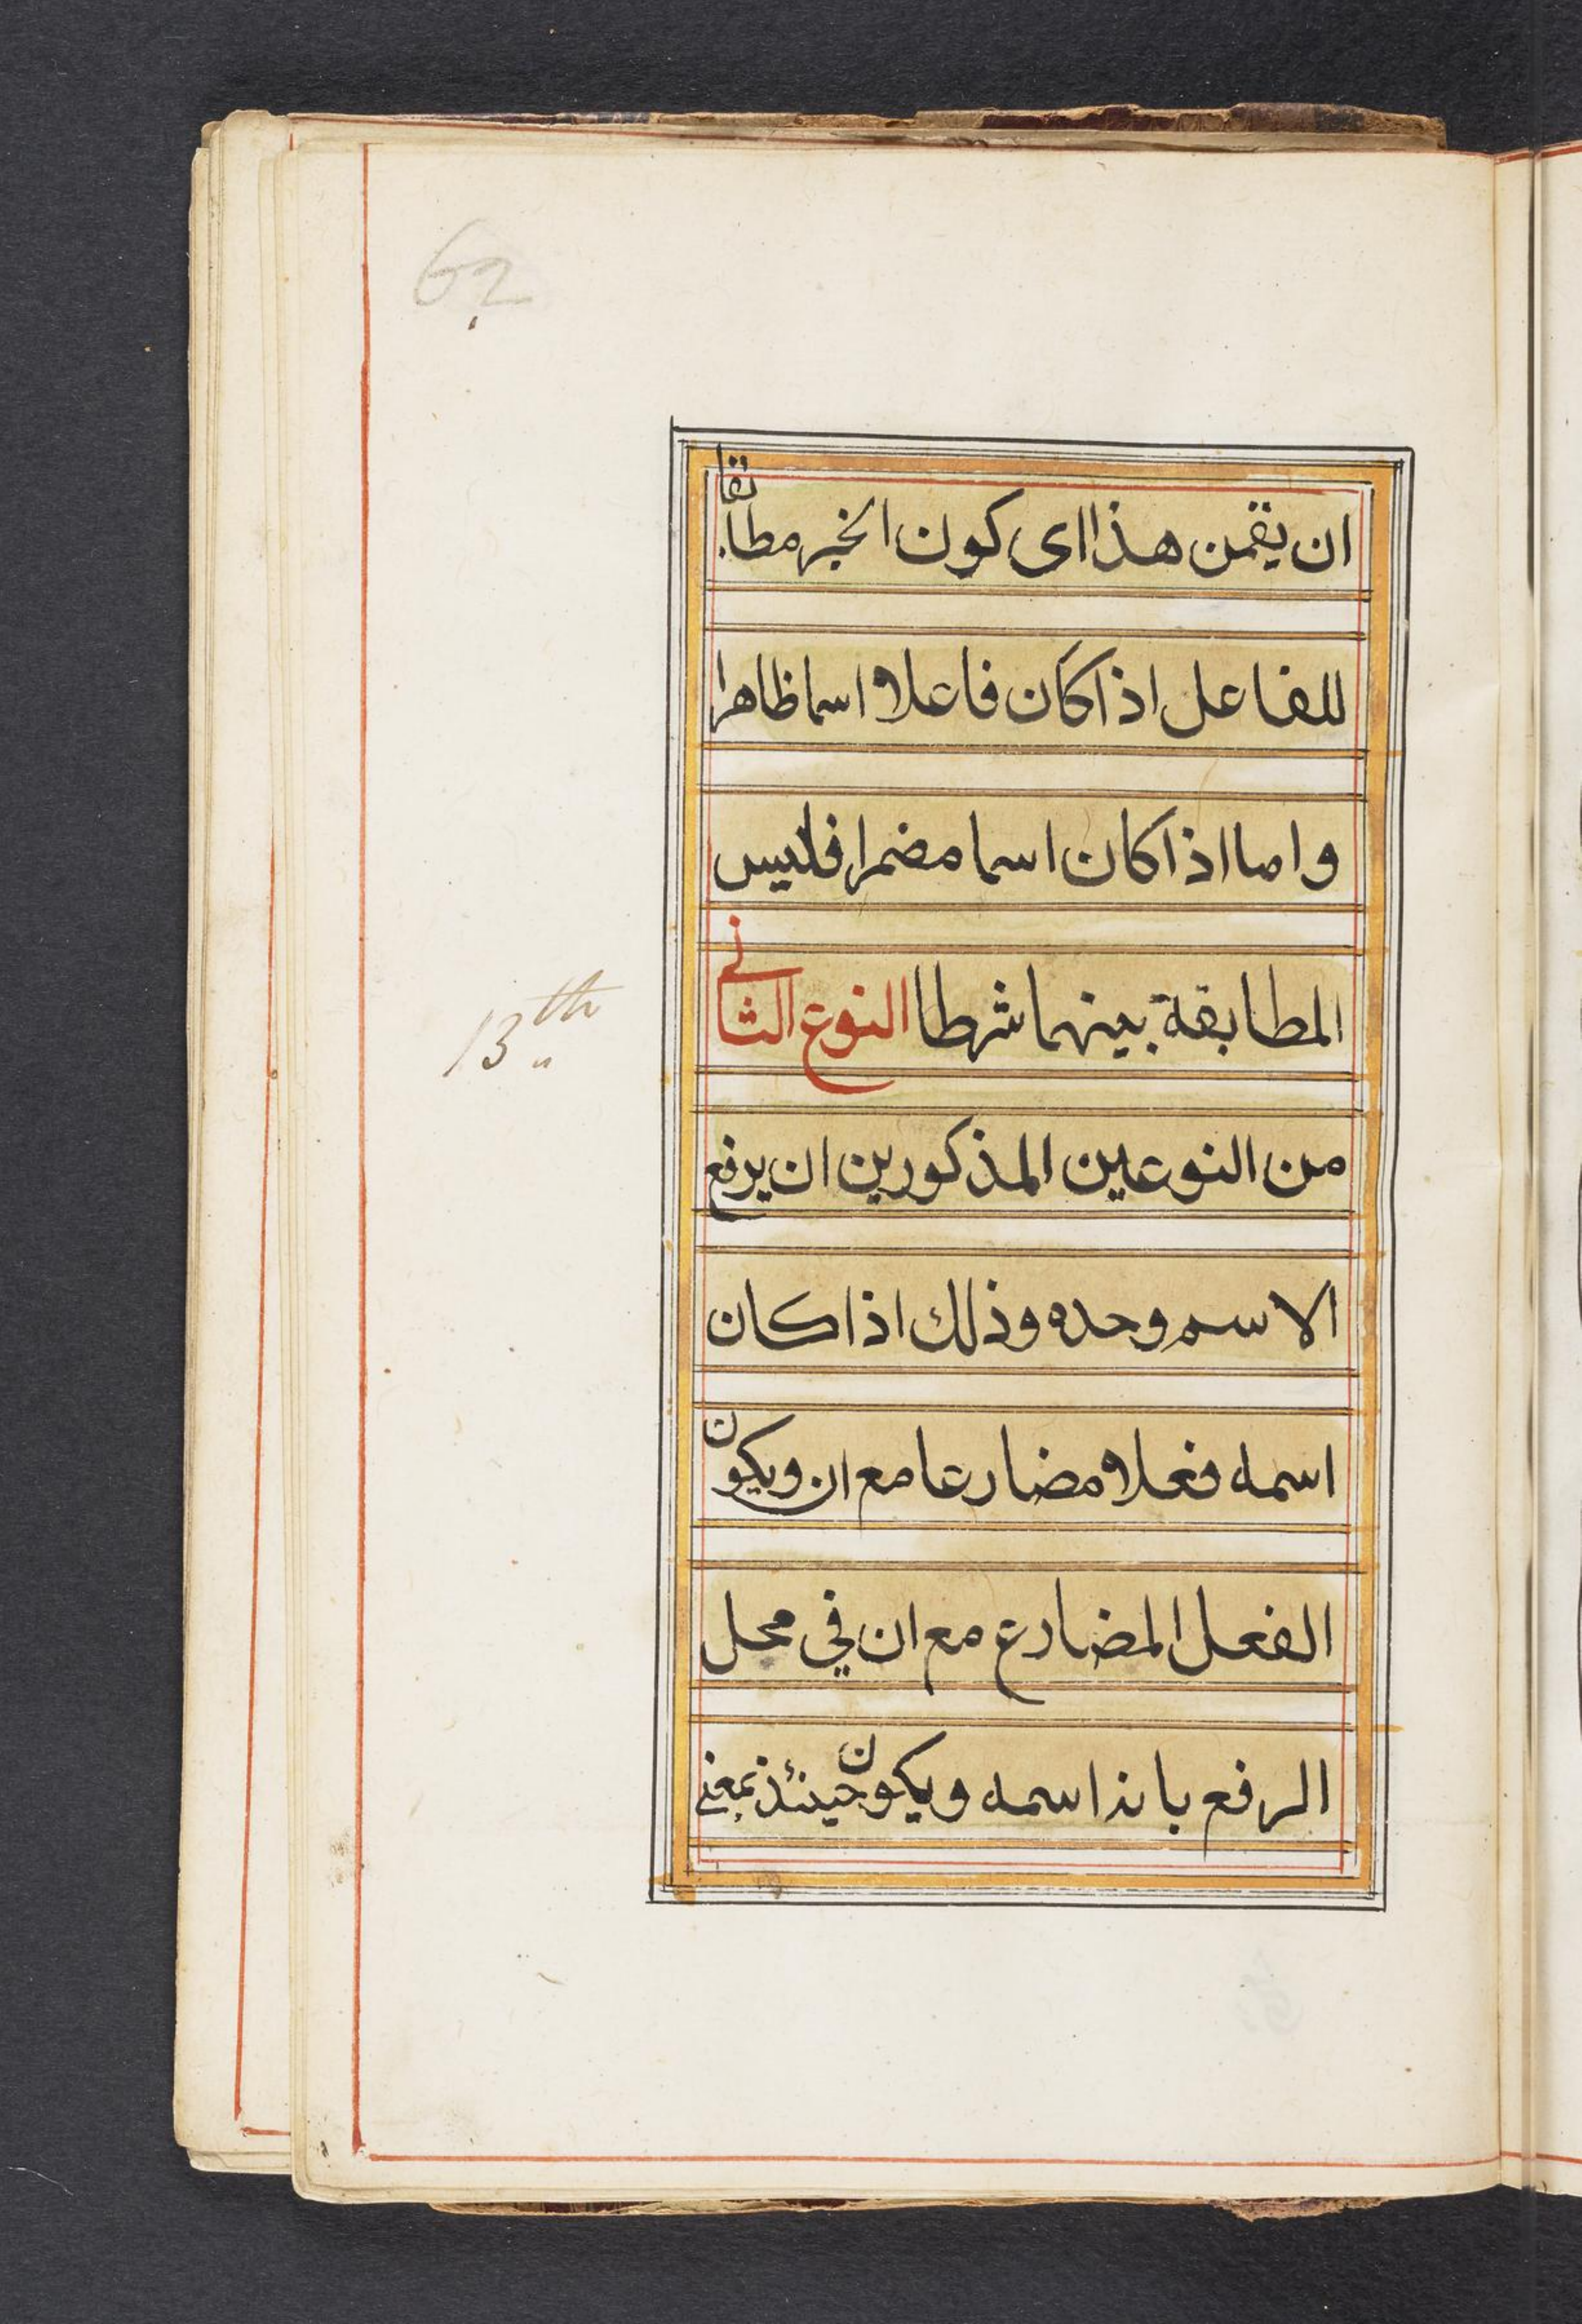 62
ان يقمن هذا اى كون الخبر مطابقا
للفاعل اذا كان فاعلا اسما ظاهرا
واما اذا كان اسما مضمرا فليس
المطابقة بينهما شرطا النوع الثاني
13th
من النوعين المذكورين ان يرفع
الاسم وحده وذلك اذا كان
اسمه فعلا مضارعا مع ان ويكون
الفعل المضارع مع ان في محل
الرفع بانه اسمه ويكون حينئذ بمعنى